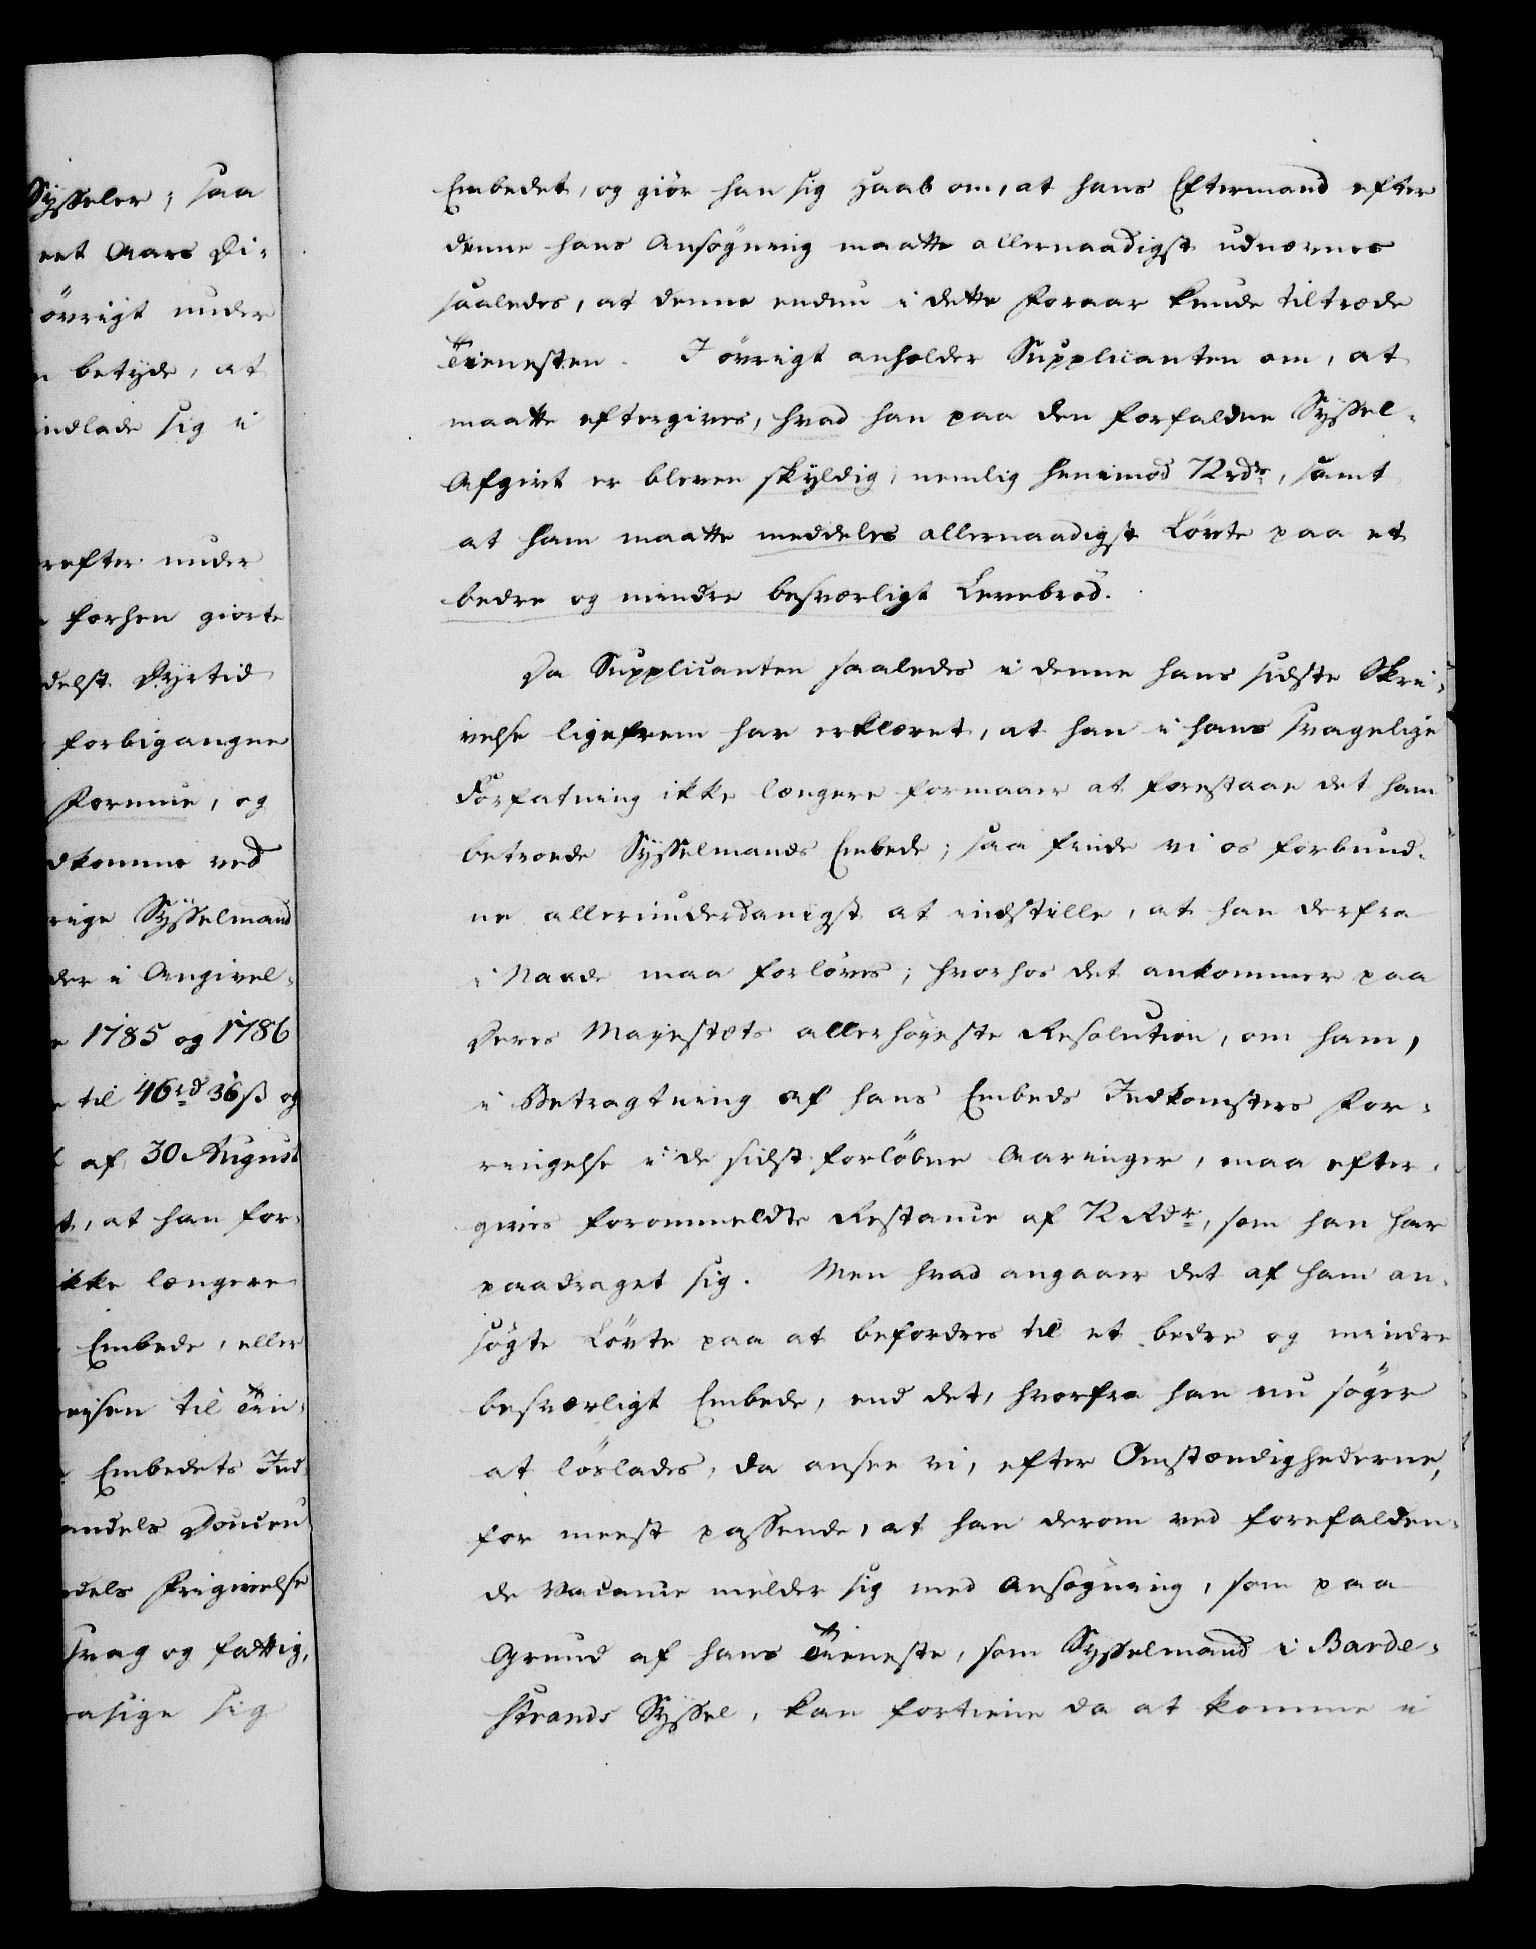 Sysseler; saa
eet Aars Di-
övrigt under
betyde, at
indlade sig i
refter under
forhen giorte
delst Dyrtid
forbigangne
Formue, og
dkomme ved
rige Sysselmand
der i Angivel-
1785 og 1786
til 46rd 36ß og
af 30 August
t, at han for-
ikke længere
Embede, eller
reisen til Tin-
Embedets Ind-
andels Douceu
dels Frigivelse
svag og fattig,
asige sig
Embedet, og giör han sig Haab om, at hans Eftermand efter
denne hans Ansögning maatte allernaadigst udnævnes
saaledes, at denne endnu i dette Foraar kunde tiltræde
Tienesten. I övrigt anholder Supplicanten om, at
maatte eftergives, hvad han paa den forfaldne Syssel-
Afgivt er bleven skyldig, nemlig henimod 72 rdr, samt
at ham maatte meddeles allernaadigst Lövte paa et
bedre og mindre besværligt Levebröd.
Da Supplicanten saaledes i denne hans sidste Skri-
velse ligefrem har erklæret, at han i hans svagelige
Forfatning ikke længere formaaer at forestaae det ham
betroede Sysselmands Embede; saa finde vi os forbund-
ne allerunderdanigst at indstille, at han derfra
i Naade maa forlöves; hvorhos det ankommer paa
Deres Mayestæts allerhöyeste Resolution, om ham,
i Betragtning af hans Embeds Indkomsters For-
ringelse i de sidst forlöbne Aaringer, maa efter-
gives forommeldte Restance af 72 Rdr, som han har
paadraget sig. Men hvad angaaer det af ham an-
sögte Lövte paa at befordres til et bedre og mindre
besværligt Embede, end det, hvorfra han nu söger
at löslades, da ansee vi, efter Omstændighederne,
for meest passende, at han derom ved forefalden-
de Vacance melder sig med Ansögning, som paa
Grund af hans Tieneste, som Sysselmand i Barde-
strands Syssel, kan fortiene da at komme i